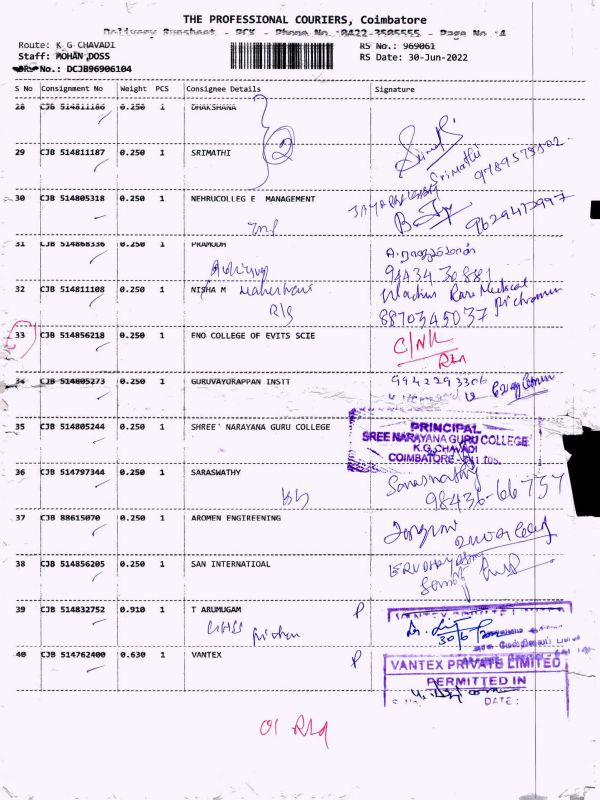 THE PROFESSIONAL COURIERS, Coimbatore
Delivery Runsheet - PCK - Phone No :0422-3505555 - Page No :4
Route: K G CHAVADI RS No.: 969061
Staff: MOHAN DOSS RS Date: 30-Jun-2022
DRS No.: DCJB96906104
S No Consignment No Weight PCS Consignee Details Signature
28 CJB 514811186 0.250 1 DHAKSHANA
2
29 CJB 514811187 0.250 1 SRIMATHI
Srimathi
30 CJB 514805318 0.250 1 NEHRUCOLLEG E MANAGEMENT
9629412997
31 CJB 514868336 0.250 1 PRAMODH
94434 30881
32 CJB 514811108 0.250 1 NISHA M Maheshwari
R/s
8870345037
33 CJB 514856218 0.250 1 ENO COLLEGE OF EVITS SCIE
34 CJB 514805273 0.250 1 GURUVAYURAPPAN INSTT 9942293306
35 CJB 514805244 0.250 1 SHREE` NARAYANA GURU COLLEGE
PRINCIPAL
SREE NARAYANA GURU COLLEGE
K.G. CHAVADI
COIMBATORE - 641 105.
36 CJB 514797344 0.250 1 SARASWATHY Saraswathy
98436-66757
37 CJB 88615070 0.250 1 AROMEN ENGIREENING
38 CJB 514856205 0.250 1 SAN INTERNATIOAL
39 CJB 514832752 0.910 1 T ARUMUGAM P
30/6
40 CJB 514762400 0.630 1 VANTEX P
VANTEX PRIVATE LIMITED
PERMITTED IN
DATE: